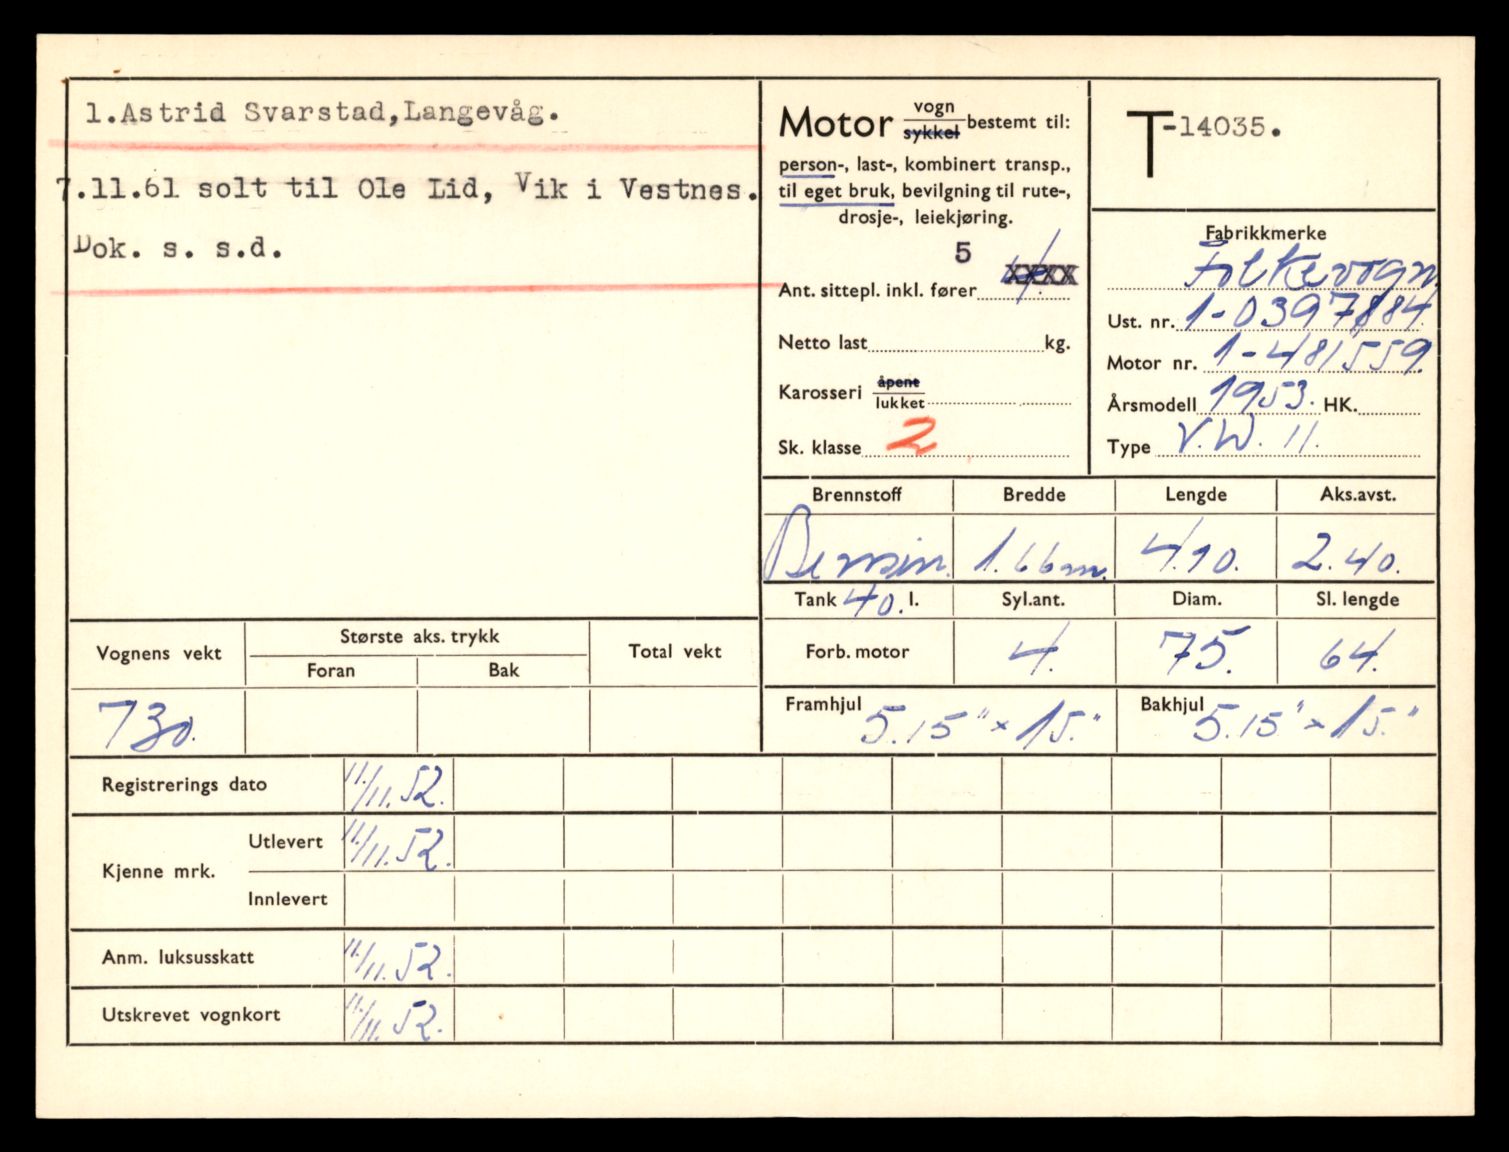 1.Astrid Svarstad,Langevåg.
7.11.61 solt til Ole Lid, Vik i Vestnes.
Dok. s. s.d.
Motor vogn sykkel bestemt til:
person-, last-, kombinert transp.,
til eget bruk, bevilgning til rute-,
drosje-, leiekjøring.
5
Ant. sittepl. inkl. fører 4. xxxx
Netto last kg.
Karosseri åpent lukket
Sk. klasse 2
T-14035.
Fabrikkmerke
Folkevogn
Ust. nr. 1-0397884
Motor nr. 1-481559.
Årsmodell 1953. HK.
Type V.W. 11.
Brennstoff Bredde Lengde Aks.avst.
Bensin. 1.66m. 4.10. 2.40.
Tank 40. l. Syl.ant. Diam. Sl. lengde
Forb. motor 4. 75. 64.
Framhjul 5.15" × 15." Bakhjul 5.15" × 15."
Vognens vekt Største aks. trykk Total vekt
Foran Bak
730.
Registrerings dato 11/11.52.
Kjenne mrk. Utlevert 11/11.52.
Innlevert
Anm. luksusskatt 11/11.52.
Utskrevet vognkort 11/11.52.